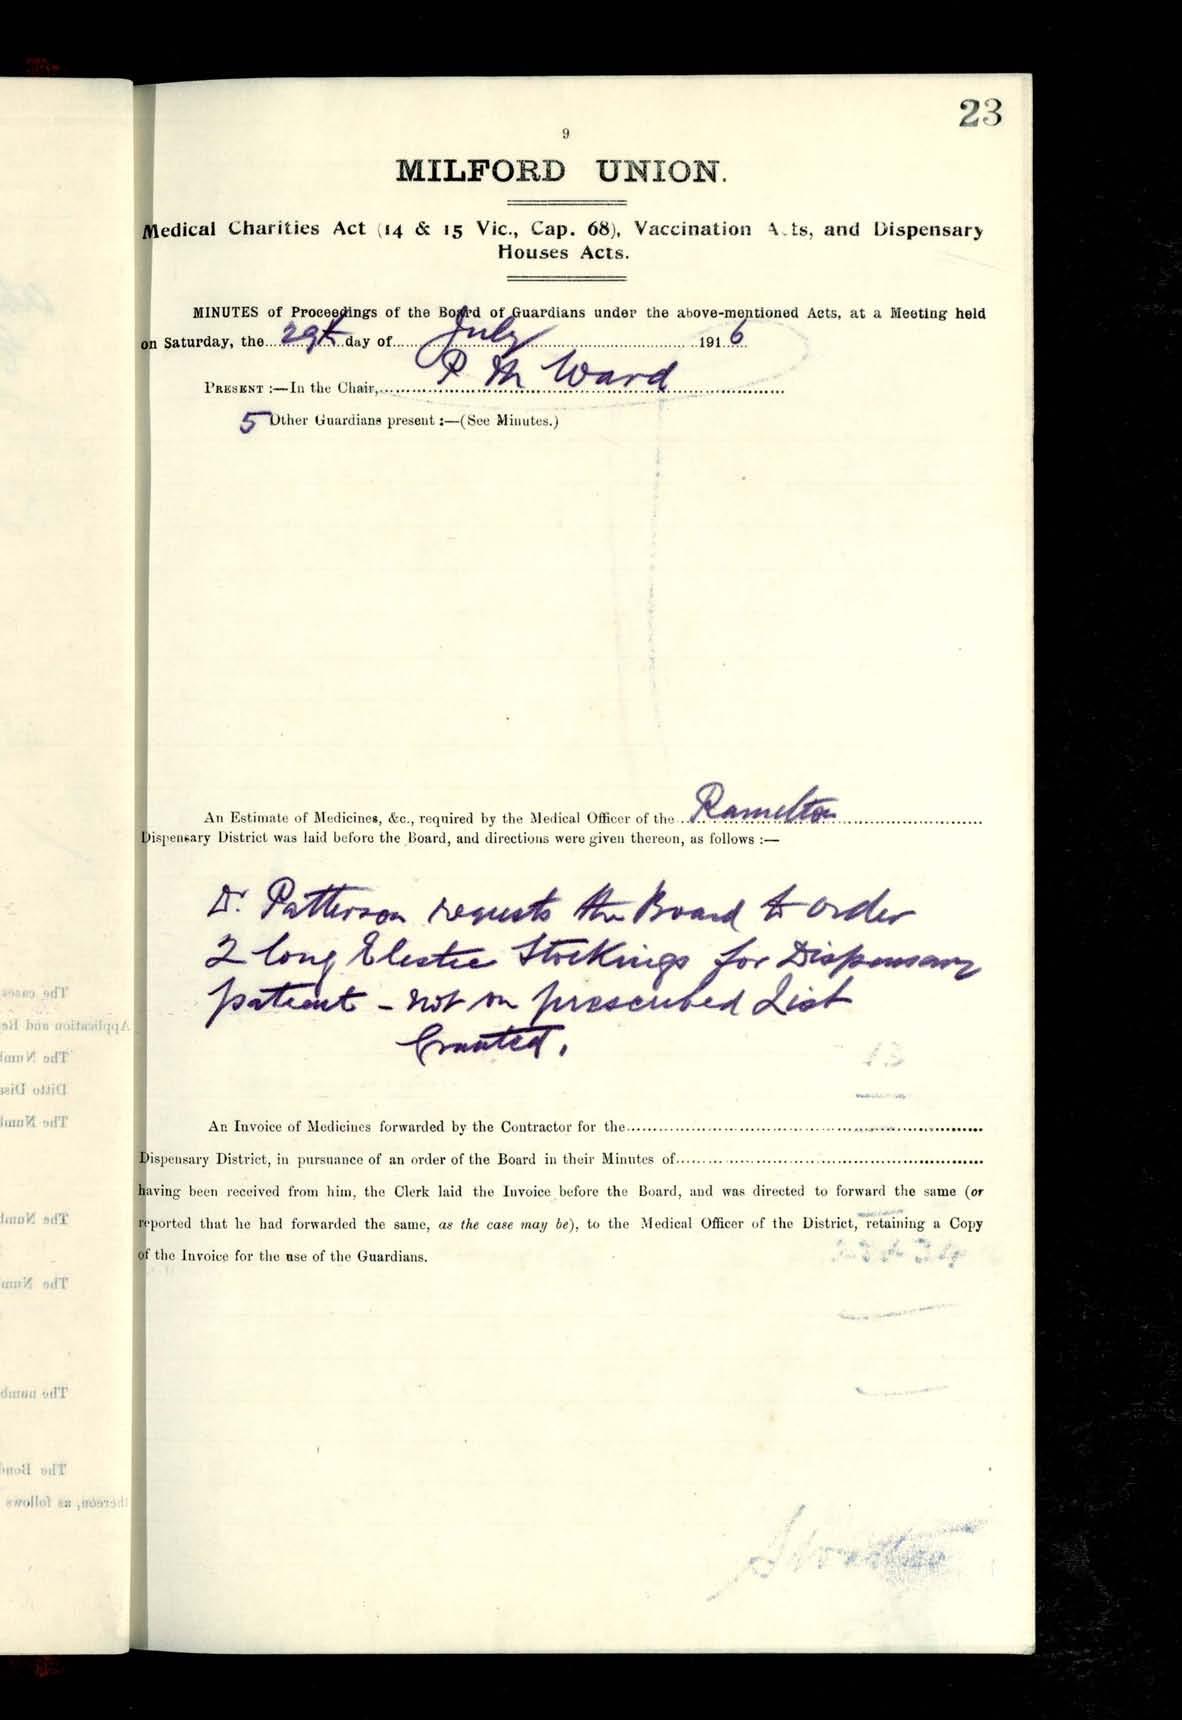 23
9
MILFORD UNION.
Medical Charities Act (14 & 15 Vic., Cap. 68), Vaccination Acts, and Dispensary
Houses Acts.
MINUTES of Proceedings of the Board of Guardians under the above-mentioned Acts, at a Meeting held
on Saturday, the 29th day of July 1916
PRESENT :—In the Chair, P M Ward
5 Other Guardians present :—(See Minutes.)
An Estimate of Medicines, &c., required by the Medical Officer of the Ramelton
Dispensary District was laid before the Board, and directions were given thereon, as follows :—
Dr. Patterson requests the Board to order
2 long Elastic Stockings for Dispensary
patient - not on prescribed List
Granted.
An Invoice of Medicines forwarded by the Contractor for the
Dispensary District, in pursuance of an order of the Board in their Minutes of
having been received from him, the Clerk laid the Invoice before the Board, and was directed to forward the same (or
reported that he had forwarded the same, as the case may be), to the Medical Officer of the District, retaining a Copy
of the Invoice for the use of the Guardians.